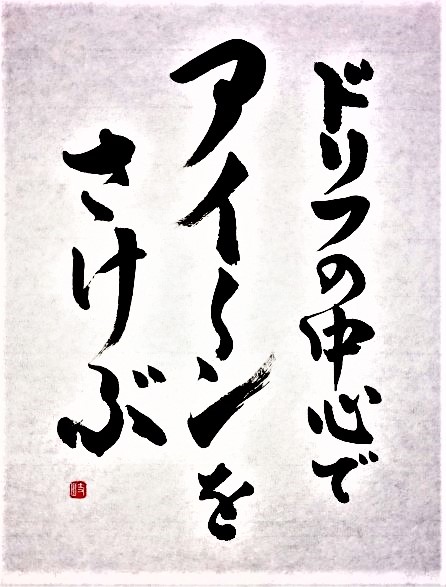 ドリフの中心で
アイ〜ンを
さけぶ